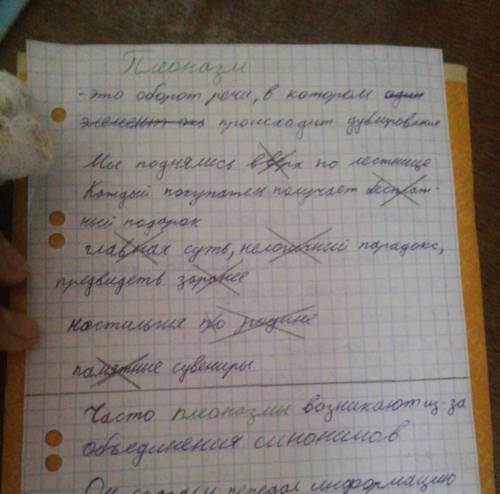 Плеоназм
- это оборот речи, в котором один
элемент происходит дублирование
Мы поднялись вверх по лестнице
Каждый покупатель получает бесплат-
ный подарок
главная суть, нелогичный парадокс,
предвидеть заранее
ностальгия по родине
памятные сувениры
Часто плеоназмы возникают из-за
объединения синонимов
передал информацию